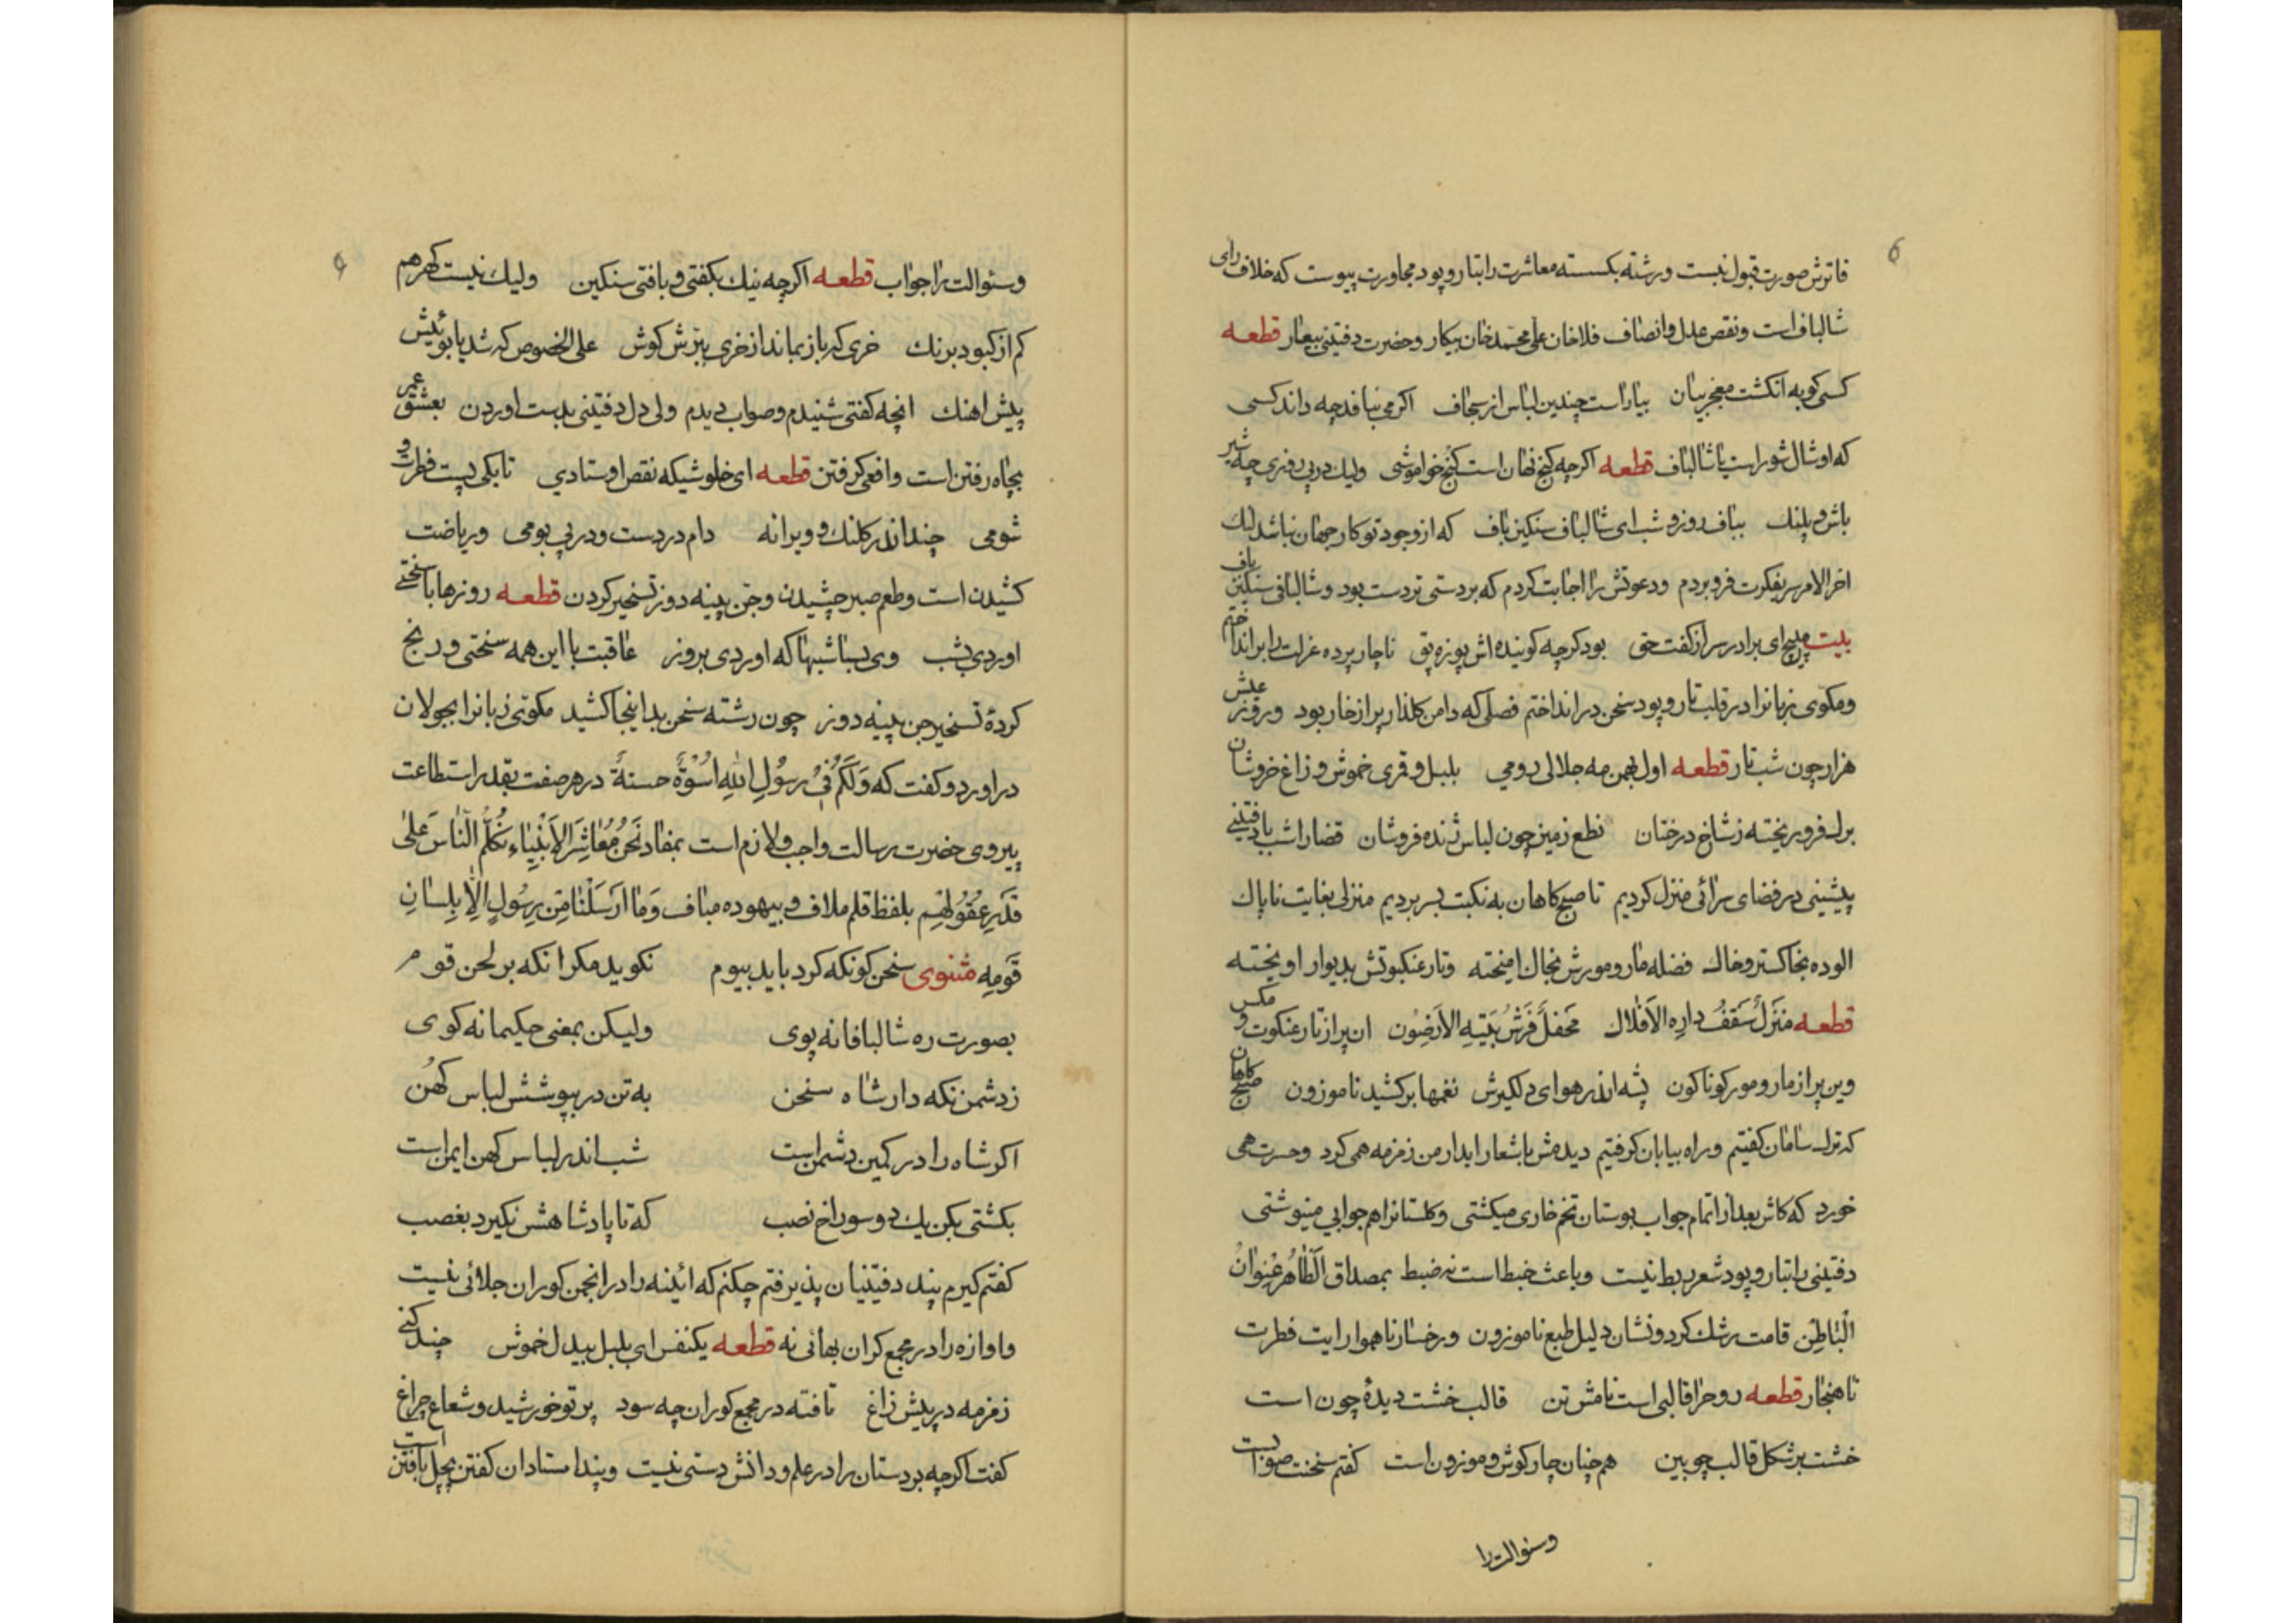 فاترش صورت قبول نیست ورشته بکسسته معاشرت رابتار وپود مجاورت پیوست که خلاف رای
شالباف است ونقص عدل وانصاف فلاخان علی محمدخان بیکار وحضرت دفتینی بیعار قطعه
کسی کو به انکشت معجز بیان بیاراست چندین لباس از سجاف اکر می نبافد چه داند کسی
که او شال شوراست یا شالباف قطعه اکرچه کنج نهان است کنج خواموشی ولیك در پی دفزی چه شیر
باش وپلنك بباف روز و شب ای شالباف سنکین باف که از وجود تو کار جهان نباشد لنك
اخر الامر سر بفکرت فرو بردم ودعوتش را اجابت کردم که بردستی تردست بود وشالبافی سنکین باف
بیت مپیچ ای برادر سر از کفت حق بود کرچه کوینده اش پوزه پق ناچار پرده عزلت را برانداختم
ومکوی زبانرا در قلب تار وپود سخن در انداختم فصلی که دامن کلذار پر از خار بود وروز عیش
هزار چون شب تار قطعه اول بهمن مه جلالی رومی بلبل وقمری خموش وزاغ خروشان
برك فرو ریخته ز شاخ درختان نطع زمین چون لباس ژنده فروشان قضا را شب با دفتینی
پیشینی در فضای سرائی منزل کردیم تا صبح کاهان به نکبت بسر بردیم منزلی بغایت ناپاك
الوده بخاکستر وخاك فضله مار ومورش بخاك امیخته وتار عنکبوتش بدیوار اویخته
قطعه منزل سقف داره الافلاك محفل فرش بیته الارضون ان پر از تار عنکوت و مکس
وین پر از مار ومور کوناکون پشه اندر هوای دلکیرش نغمها برکشید ناموزون صبح کاهان
که ترك سامان کفتیم وراه بیابان کرفتیم دیدمش با شعار ابدار من زمزمه همی کرد وحسرت همی
خورد که کاش بعد از اتمام جواب بوستان تخم خاری میکشتی وکلستانرا هم جوابی مینوشتی
دفتینی را بتار وپود شعر ربط نیست وباعث خبط است نه ضبط بمصداق الظاهر عنوان
الباطن قامت رشك کردو نشان دلیل طبع ناموزون ورخسار ناهموارایت فطرت
ناهنجار قطعه روح را قالبی است نامش تن قالب خشت دیدهٔ چون است
خشت بر شکل قالب چوبین هم چنان چار کوش وموزون است کفتم سخنت صوابست
وسئوالت را
وسئوالت را جواب قطعه اکرچه نیك بکفتی و بافتی سنکین ولیك نیست کهر هم
کم از کبود برنك خری که باز بماند از خری ببرش کوش علی الخصوص که شد یابوئیش
پیش اهنك انچه کفتی شنیدم وصواب دیدم ولی دل دفتینی بدست اوردن بعشق عمر
بچاه رفتن است وافعی کرفتن قطعه ای خلوشیکه نقص اوستادی تا بکی پست فطرت و
شومی چند اندر کلنك و ویرانه دام در دست ودر پی بومی وریاضت
کشیدن است وطعم صبر چشیدن وجن پینه دوز تسخیر کردن قطعه روزها با سختی
اوردی بشب وی بسا شبها که اوردی بروز عاقبت با این همه سختی ورنج
کردهٔ تسخیر جن پینه دوز چون رشته سخن بداینجا کشید مکوئی زبانرا بجولان
دراورد و کفت که ولکم فی رسول الله اسوة حسنة در هر صفت بقدر استطاعت
پیروی حضرت رسالت واجب ولازم است بمفاد نحن معاشر الانبیاء نکلم الناس علی
قدر عقولهم بلفظ قلم ملاف و بیهوده مباف وما ارسلنا من رسول الا بلسان
قومه مثنوی سخن کو نکه کرد باید ببوم نکوید مکر انکه بر لحن قوم
بصورت ره شالبافانه پوی ولیکن بمعنی حکیمانه کوی
زدشمن نکه دار شاه سخن به تن در بپوشش لباس کهن
اکر شاه را در کمین دشمن است شب اندر لباس کهن ایمن است
بکشتی بکن یك دو سوراخ نصب که تا پادشاهش نکیرد بغصب
کفتم کیرم پند دفتینیان پذیرفتم چکنم که ائینه را در انجمن کوران جلائی نیست
واوازه را در مجمع کران بهائی نه قطعه یکنفس ای بلبل بیدل خموش چند کنی
زمزمه در پیش زاغ تافته در مجمع کوران چه سود پرتو خورشید وشعاع چراغ
کفت اکرچه بردستان را در علم ودانش دستی نیست وپند استادان کفتن پچل بافتن است